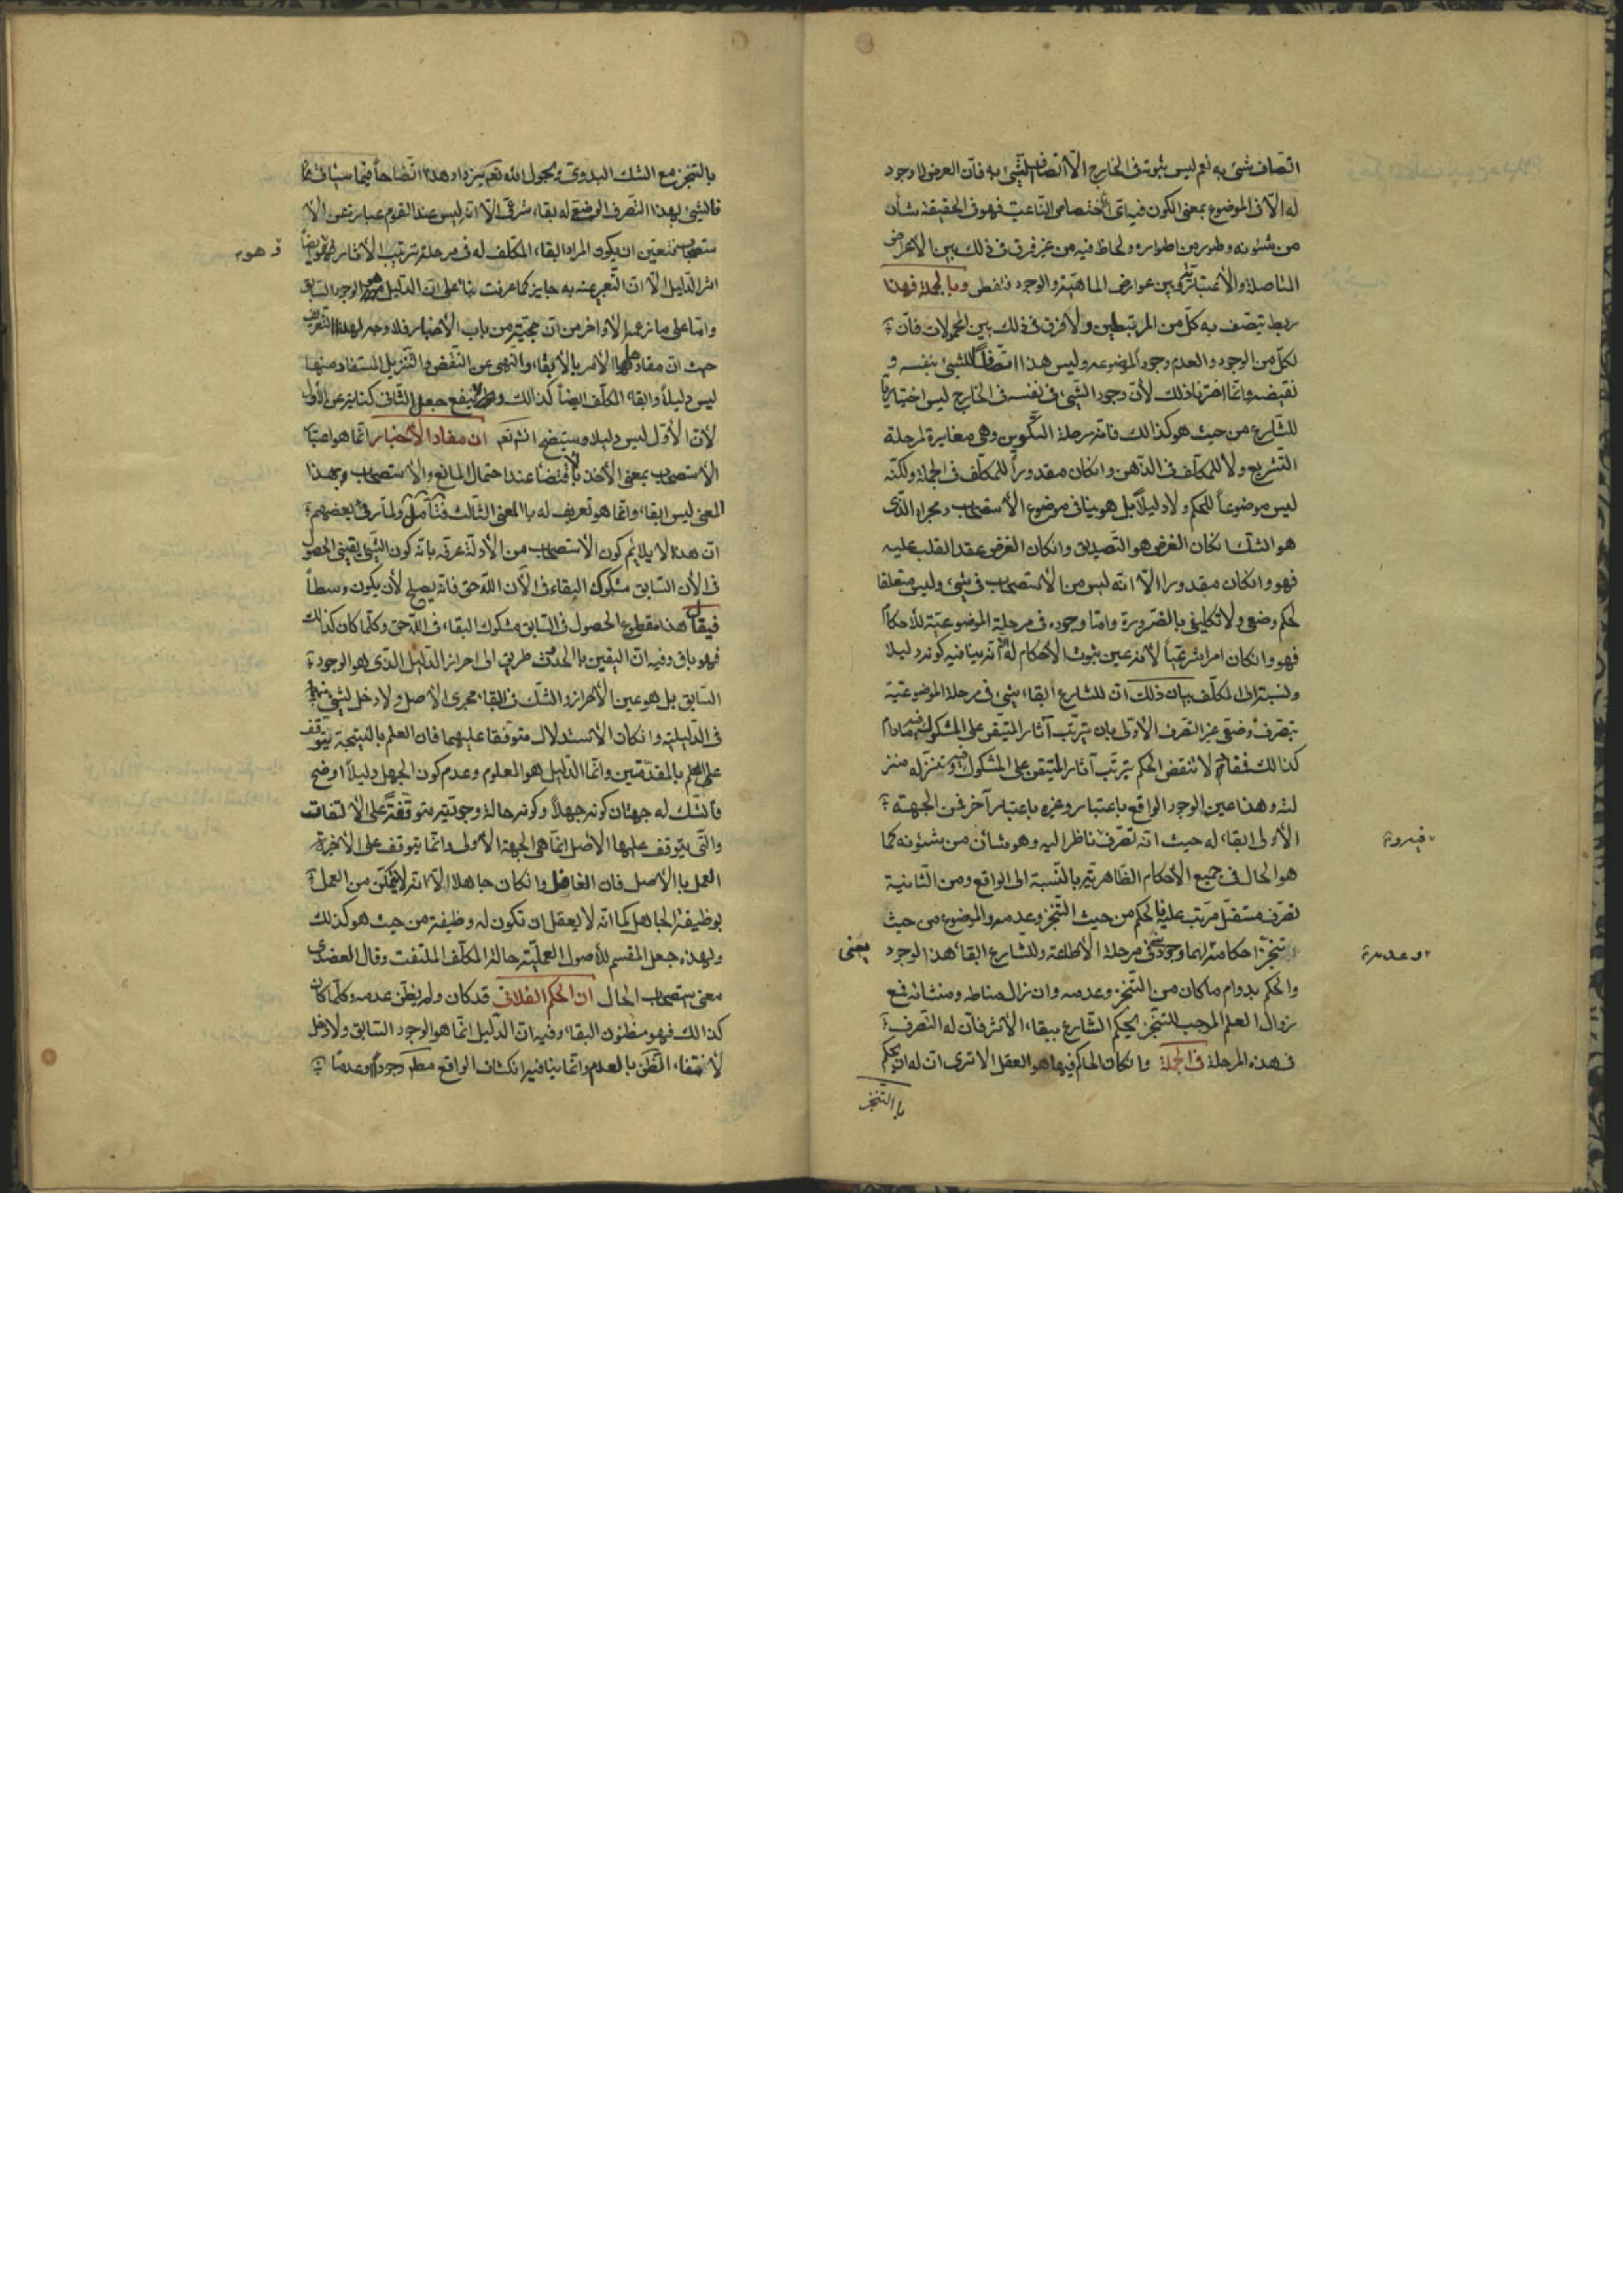 اتّصاف شئ به نعم ليس ثبوته فى الخارج الّا اتصاف الشّئ به فانّ العرض لا وجود
له الّا فى الموضوع بمعنى الكون فيه اى الأختصاص الناعت فهو فى الحقيقة شأن
من شئونه وطور من اطواره ولحاظ فيه من غير فرق فى ذلك بين الأعراض
المتاصلة والأعتباريّة بين عوارض الماهيّة والوجود فتفطن وبالجملة فهذا
ربط يتصف به كلّ من المرتبطين ولا فرق فى ذلك بين المحمولات فانّ
لكلّ من الوجود والعدم وجود لموضوعه وليس هذا اتّصافاً للشئ بنفسه و
نقيضه وانّما اخترنا ذلك لأنّ وجود الشّئ فى نفسه فى الخارج ليس اختياريا
للشّارع من حيث هو كذالك فانه مرحلة التّكوين وهى مغايرة لمرحلة
التّشريع ولا للمكلّف فى الذّهن وانكان مقدوراً للمكلّف فى الجملة ولكنّه
ليس موضوعاً للحكم ولا دليلاً بل هو ينافى موضوع الأستصحاب ومجراه الّذى
هو الشك انكان الغرض هو التّصديق وانكان الغرض عقد القلب عليه
فهو وانكان مقدورا الّا انه ليس من الأستصحاب فى شئ وليس متعلقا
لحكم وضعى ولا تكليفى بالضّرورة وامّا وجوده فى مرحلة الموضوعيّة للأحكام
فهو وانكان امرا شرعيّاً لأنه عين ثبوت الأحكام له الّا انه ينافيه كونه دليلا
ونسبته الى المكلّف بيان ذلك انّ للشارع ابقاء شئ فى مرحلة الموضوعيّة
بتصرف وضعّى غير التّصرف الأوّلى بان يترتّب آثار المتيّقن على المشكوك فيه مادام
كذالك فمفاد لا تنقض الحكم بترتّب آثار المتيقن على المشكول فيه وتنزّله منز
لته وهذا عين الوجود الواقع باعتبار وغيره باعتبار آخر فمن الجهة
الأولى ابقاء له حيث انه تصّرف ناظر اليه وهو شأن من شئونه كما
هو الحال فى جميع الأحكام الظّاهريّة بالنّسبة الى الواقع ومن الثّانية
تصرّف مستقلّ مرتب عليه فالحكم من حيث التّنجز وعدمه والموضوع من حيث
تنجّز احكامه لهما وجود فى مرحلة الأطاعة وللشارع ابقاء هذا الوجود
والحكم بدوام ماكان من التّنجز وعدمه وان زال مناطه ومنشائه فمع
زوال العلم الموجب للتنّجز يحكم الشّارع ببقاء الأثر فانّ له التّصرف
فى هذه المرحلة فى الجملة وانكان الحاكم فيها هو العقل الا ترى انّ له ان يحكم
باالتّنجّز
وعدمه
يعنى
بالتنجّز مع الشك البدوى ويحول الله تعم يزداد هذا اتّضاحاً فيما سيئاتى
فالشئ بهذا التصرف الوضعى له بقاء شرعّى الّا انه ليس عند القوم عبارة عن الأ
ستصحاب فتعيّن ان يكون المراد ابقاء المكلّف له فى مرحلة ترتيب الأثار
اثر الدّليل الّا انّ التّعبير عنه به جايز كما عرفت بناء على انّ الدّليل هو الوجود السّابق
وامّا على ما زعمه الأواخر من انّ حجّيّته من باب الأخبار فلا وجه لهذا التعريف
حيث انّ مفادها الأمر بالأبقاء والنّهى عن النّقض والتّنزيل المستفاد منها
ليس دليلاً وابقاء المكلّف ايضاً كذالك ولا ينفع جعل الثّانى كناية عن الأول
لأنّ الأوّل ليس دليلا وسيتّضح انشتعم انّ مفاد الأخبار انّما هو اعتبار
الأستصحاب بمعنى الأخذ بالأقتضاء عند احتمال المانع والأستصحاب وبهذا
المعنى ليس ابقاء وانّما هو تعريف له باالمعنى الثّالث فتأمّل ولمّا رئى بعضهم
انّ هذا لا يلايم كون الأستصحاب من الأدلّة عرّفه بانّه كون الشّئ يقينى الحصول
فى الأن السّابق مشكوك البقاء فى الأن اللّاحق فانّه يصلح لأن يكون وسطاً
فيقال هذا مقطوع الحصول فى السّابق مشكوك البقاء فى اللّاحق وكلّما كان كذالك
فهو باق وفيه انّ اليقين باالحدوث طريق الى احراز الدّليل الّذى هو الوجود
السّابق بل هو عين الأحراز والشّك فى البقاء مجرى الأصل ولا دخل لشئ منهما
فى الدّليليّة وانكان الأستدلال متوقفا عليهما فان العلم بالنّتيجة يتوقّف
على العلم بالمقدّمتين وانّما الدّليل هو المعلوم وعدم كون الجهل دليلاً اوضح
فالشّك له جهتان كونه جهلاً وكونه حالة وجوديّة متوقّفة على الألتفات
والّتى يتوقف عليها الأصل انّما هى الجهة الأولى وانّما يتوقف على الأخيرة
العمل باالأصل فان الغافل وانكان جاهلا الّا انه لا يتمكّن من العمل
بوظيفة الجاهل كما انّه لا يعقل ان تكون له وظيفة من حيث هو كذلك
ولهذه جعل المقسم للأصول العمليّة حالة المكلّف الملتفت وقال العضدى
معنى استصحاب الحال انّ الحكم الفلانى قد كان ولم يظنّ عدمه وكلّما كان
كذالك فهو مظنون البقاء وفيه انّ الدّليل انّما هو الوجود السّابق ولا دخل
لأنتفاء الظّن بالعدم وانّما ينافيه انكشاف الواقع مطم وجوداً وعدما